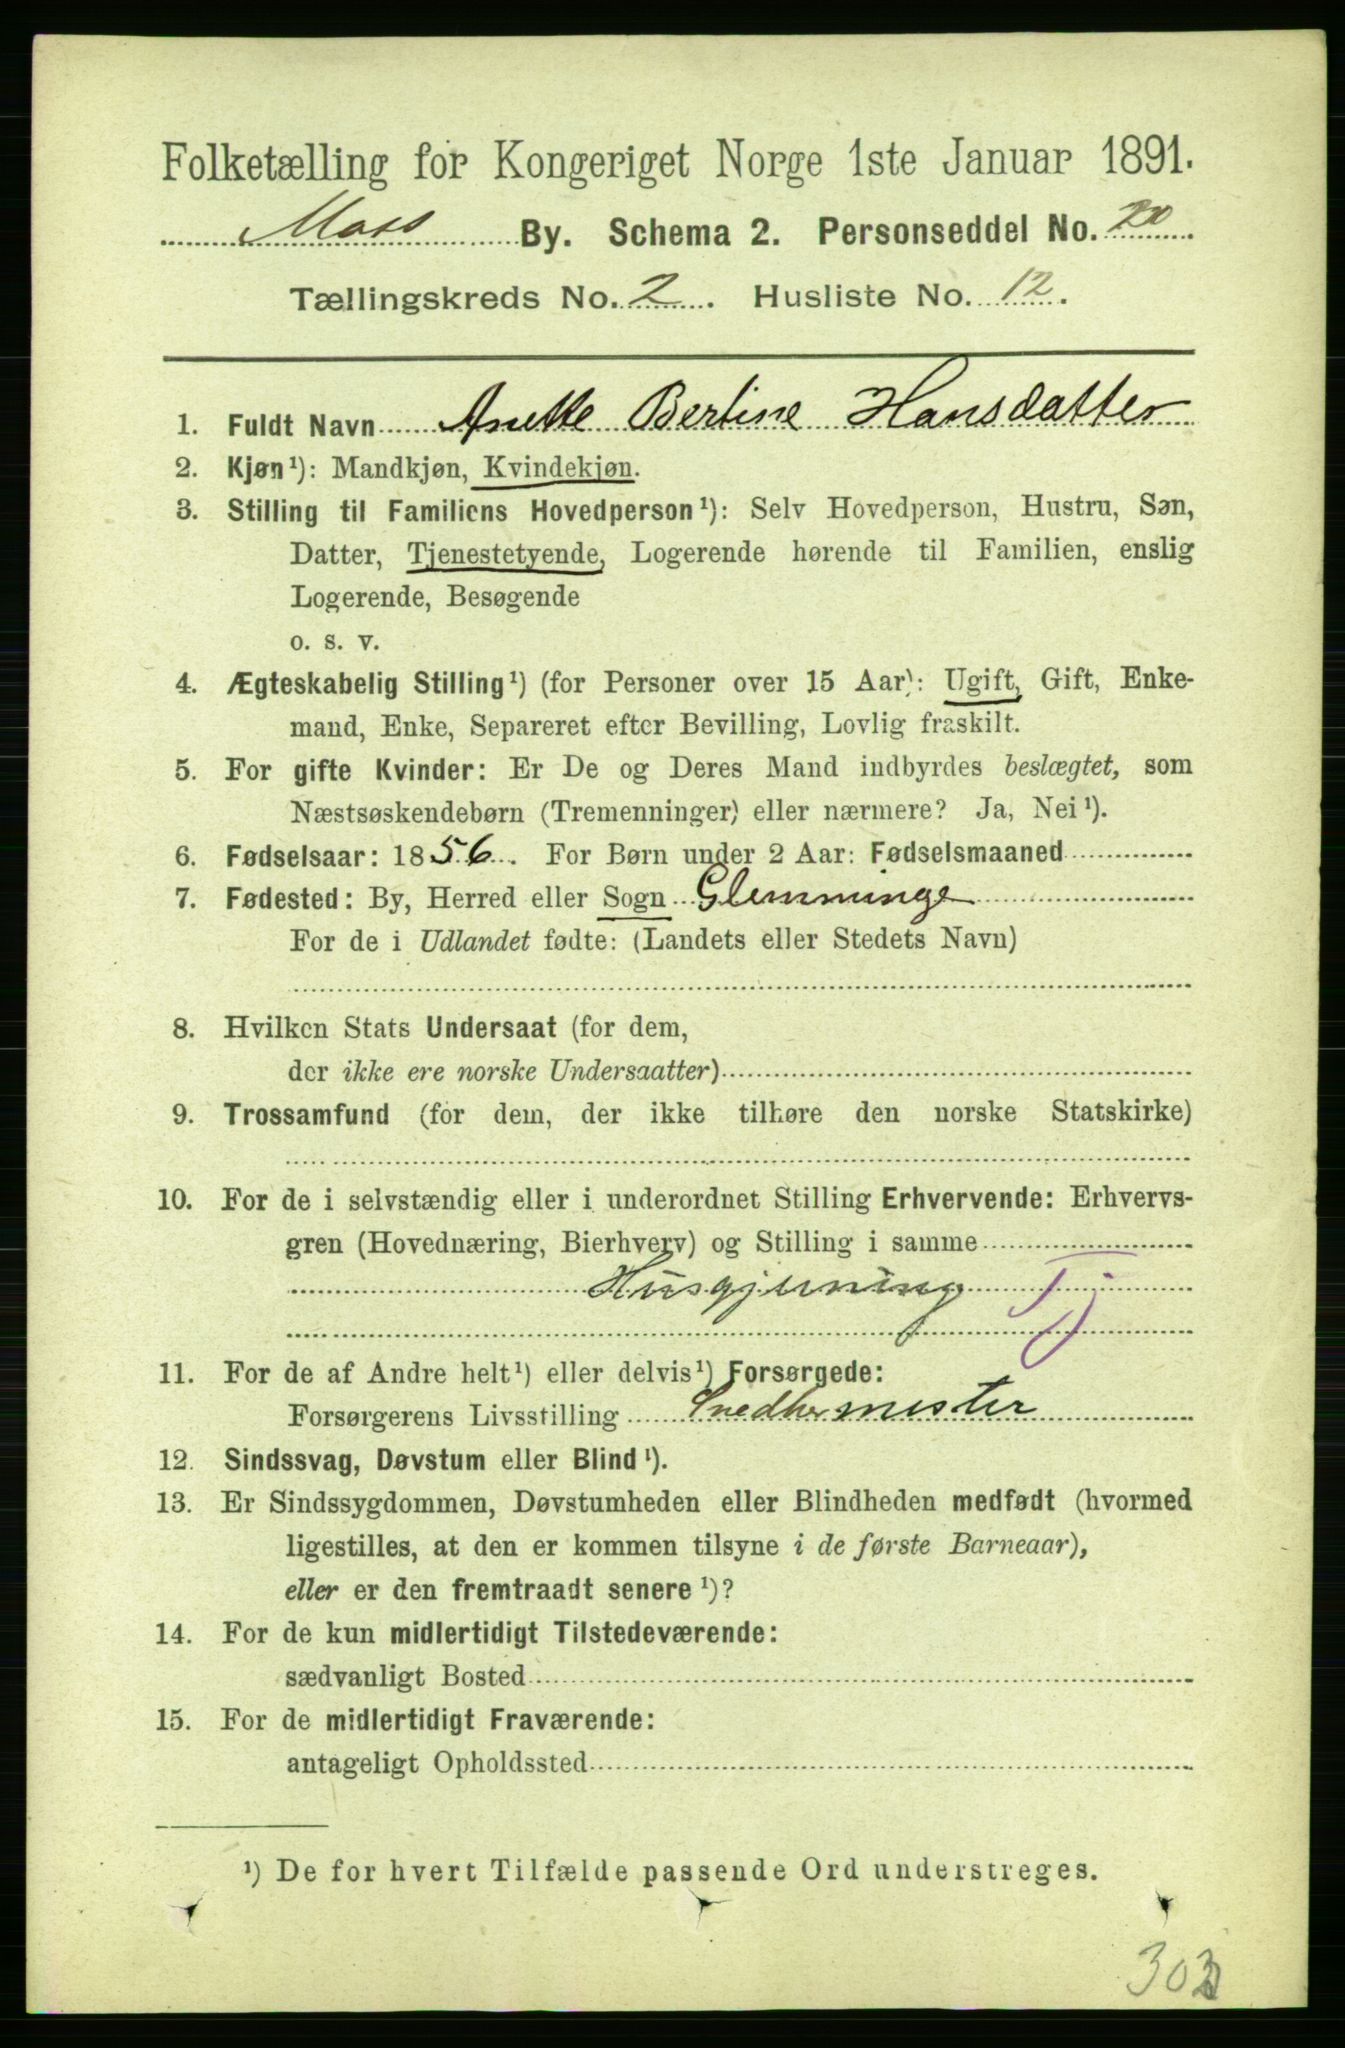 Folketælling for Kongeriget Norge 1ste Januar 1891.
Moss By. Schema 2. Personseddel No. 20
Tællingskreds No. 2. Husliste No. 12.
1. Fuldt Navn Anette Bertine Hansdatter
2. Kjøn¹): Mandkjøn, Kvindekjøn.
3. Stilling til Familiens Hovedperson¹): Selv Hovedperson, Hustru, Søn,
Datter, Tjenestetyende, Logerende hørende til Familien, enslig
Logerende, Besøgende
o. s. v.
4. Ægteskabelig Stilling¹) (for Personer over 15 Aar): Ugift, Gift, Enke-
mand, Enke, Separeret efter Bevilling, Lovlig fraskilt.
5. For gifte Kvinder: Er De og Deres Mand indbyrdes beslægtet, som
Næstsøskendebørn (Tremenninger) eller nærmere? Ja, Nei¹).
6. Fødselsaar: 1856. For Børn under 2 Aar: Fødselsmaaned
7. Fødested: By, Herred eller Sogn Glemminge
For de i Udlandet fødte: (Landets eller Stedets Navn)
8. Hvilken Stats Undersaat (for dem,
der ikke ere norske Undersaatter)
9. Trossamfund (for dem, der ikke tilhøre den norske Statskirke)
10. For de i selvstændig eller i underordnet Stilling Erhvervende: Erhvervs-
gren (Hovednæring, Bierhverv) og Stilling i samme
Husgjerning Tj
11. For de af Andre helt¹) eller delvis¹) Forsørgede:
Forsørgerens Livsstilling Snedkermester
12. Sindssvag, Døvstum eller Blind¹).
13. Er Sindssygdommen, Døvstumheden eller Blindheden medfødt (hvormed
ligestilles, at den er kommen tilsyne i de første Barneaar),
eller er den fremtraadt senere¹)?
14. For de kun midlertidigt Tilstedeværende:
sædvanligt Bosted
15. For de midlertidigt Fraværende:
antageligt Opholdssted
¹) De for hvert Tilfælde passende Ord understreges.